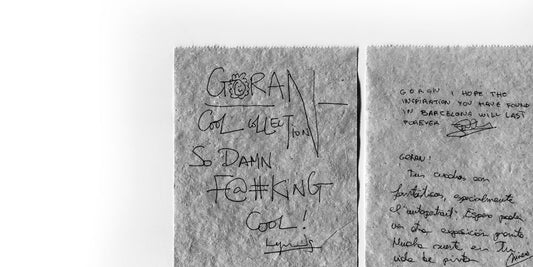 GORAN
COOL COLLECTION
SO DAMN
F@#KING
COOL!
GORAN I HOPE THE
INSPIRATION YOU HAVE FOUND
IN BARCELONA WILL LAST
FOREVER
GORAN!
Tus cuadros son
fantásticos, especialmente
el "autoportrait". Espero poder
ver otra exposición pronto.
Mucha suerte en tu
vida de pintor